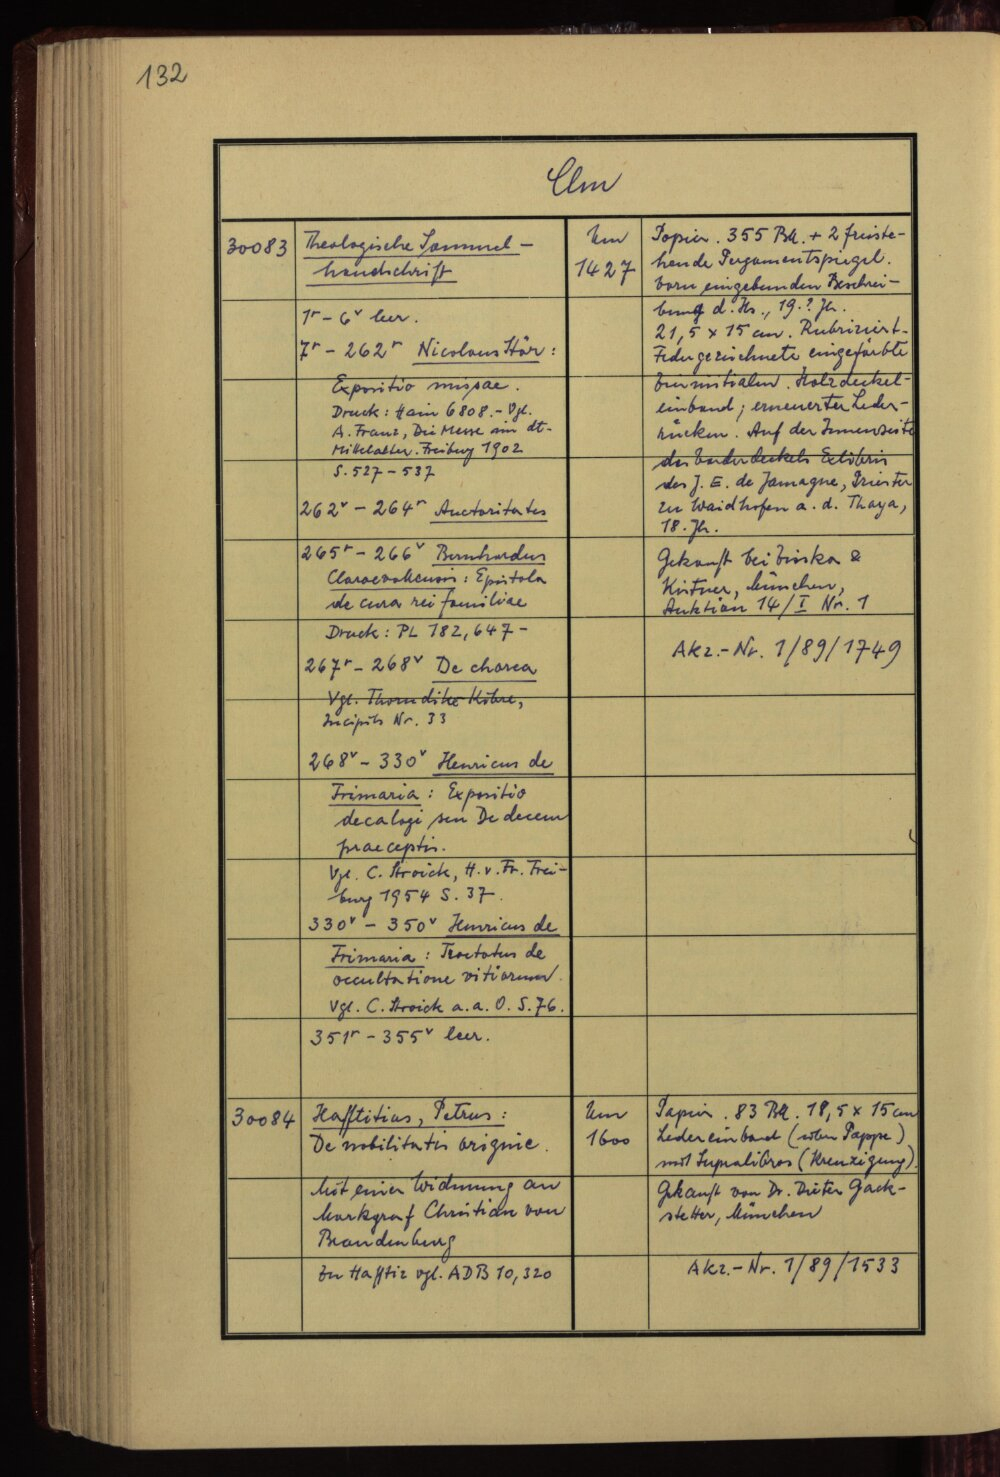 132
Clm
30083
Theologische Sammel-
handschrift
1r - 6v leer.
7r - 262r Nicolaus Stör:
Expositio missae.
Druck: Hain 6808. - Vgl.
A. Franz, Die Messe im dt.
Mittelalter. Freiburg 1902
S. 527-537
262v - 264r Auctoritates
265r - 266v Bernhardus
Claraevallensis: Epistola
de cura rei familiae
Druck: PL 182, 647-
267r - 268v De chorea
Vgl. Thorndike-Kibre,
Incipits Nr. 33
268v - 330v Henricus de
Frimaria: Expositio
decalogi seu De decem
praeceptis.
Vgl. C. Stroick, H. v. Fr. Frei-
burg 1954 S. 37.
330v - 350v Henricus de
Frimaria: Tractatus de
occultatione vitiorum.
Vgl. C. Stroick a.a.O. S. 76.
351r - 355v leer.
Um
1427
Papier. 355 Bll. + 2 freiste-
hende Pergamentspiegel.
Vorn eingebunden Beschrei-
bung d. Hs., 19.? Jh.
21,5 x 15 cm. Rubriziert.
Federgezeichnete eingefärbte
Zierinitialen. Holzdeckel-
einband; erneuerter Leder-
rücken. Auf der Innenseite
des Vorderdeckels Exlibris
des J. E. de Jamagne, Priester
zu Waidhofen a. d. Thaya,
18. Jh.
Gekauft bei Zisska &
Kistner, München,
Auktion 14/I Nr. 1
Akz.-Nr. 1/89/1749
30084
Hafftitius, Petrus:
De nobilitatis origine.
Mit einer Widmung an
Markgraf Christian von
Brandenburg
Zu Hafftiz vgl. ADB 10, 320
Um
1600
Papier. 83 Bll. 18,5 x 15 cm
Ledereinband (über Pappe)
mit Supralibros (Kreuzigung).
Gekauft von Dr. Dieter Gack-
stetter, München
Akz.-Nr. 1/89/1533